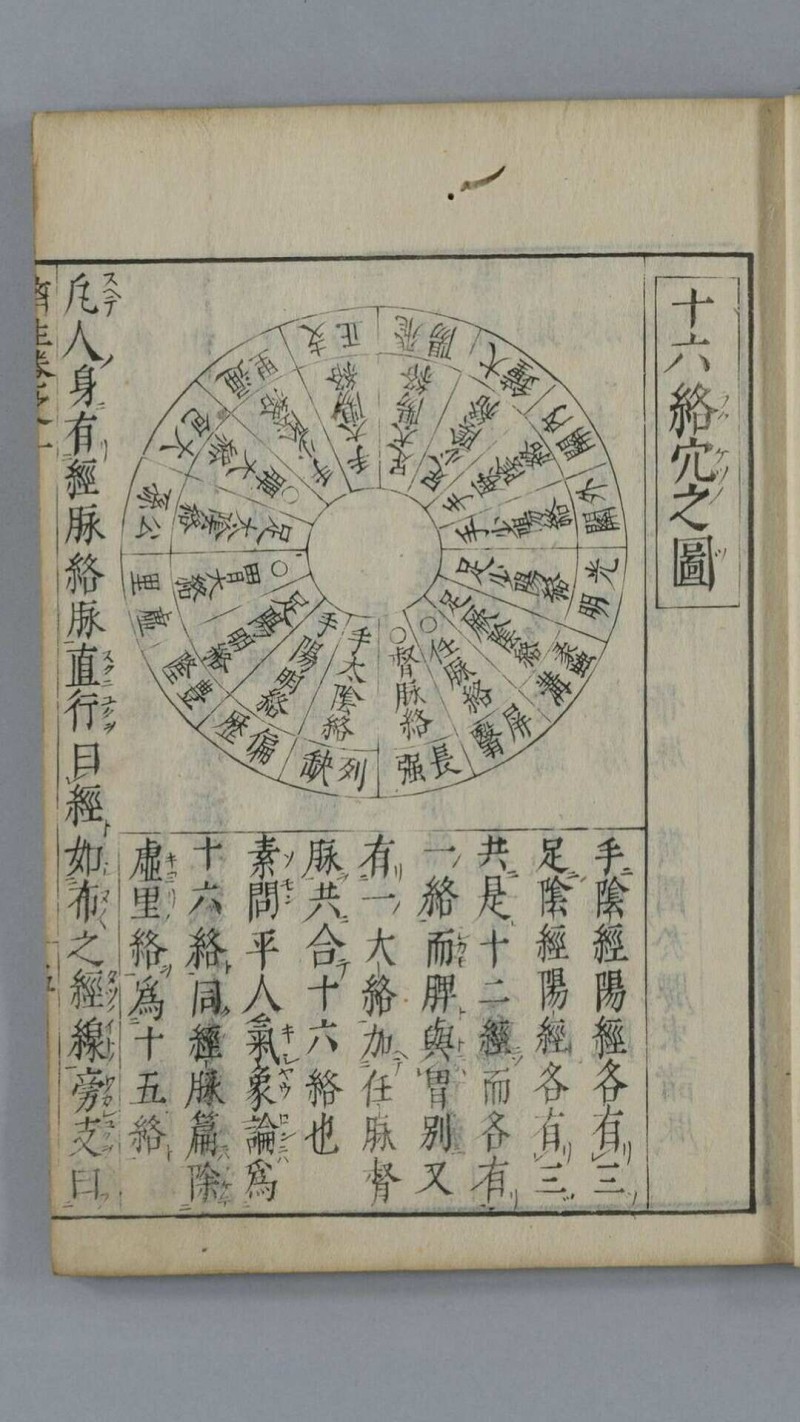 十六絡穴之圖
飛陽
足太陽絡
大鐘
足少陰絡
內關
手厥陰絡
外關
手少陽絡
光明
足少陽絡
蠡溝
足厥陰絡
屏翳
○任脉絡
長强
○督脉絡
列缺
手太陰絡
偏歷
手陽明絡
豊隆
足陽明絡
虛里
○胃大絡
公孫
足太陰絡
大包
○脾大絡
通里
手少陰絡
支正
手太陽絡
手陰經陽經各有三
足陰經陽經各有三
共是十二經而各有
一絡而脾與胃別又
有一大絡加任脉督
脉共合十六絡也
素問平人氣象論爲
十六絡同經脉篇除
虛里絡爲十五絡
凢人身有經脉絡脉直行曰經如布之經線旁支曰